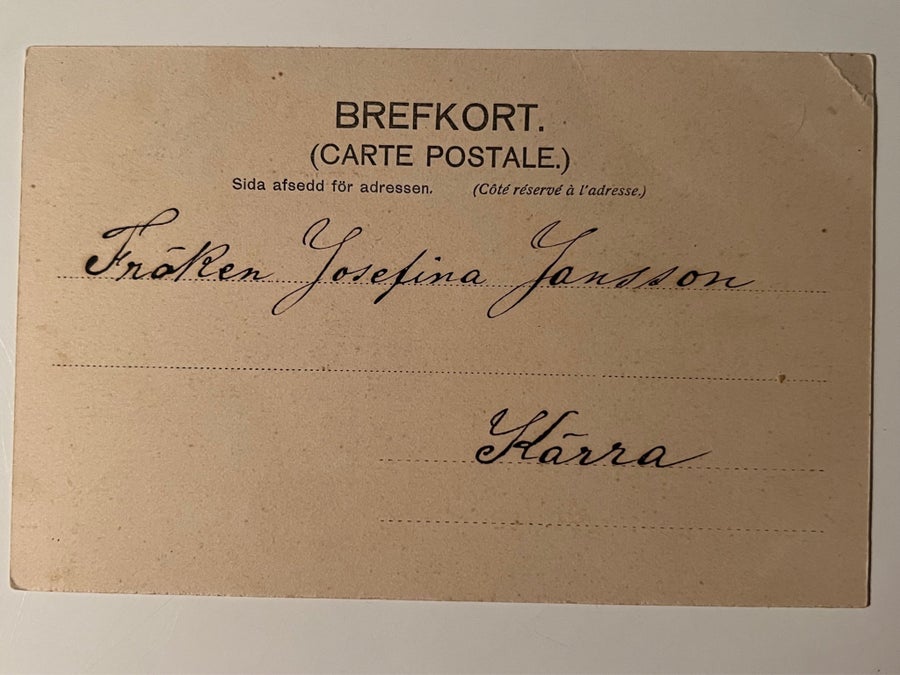 BREFKORT.
(CARTE POSTALE.)
Sida afsedd för adressen. (Côté réservé à l'adresse.)
Fröken Josefina Jansson
Kärra